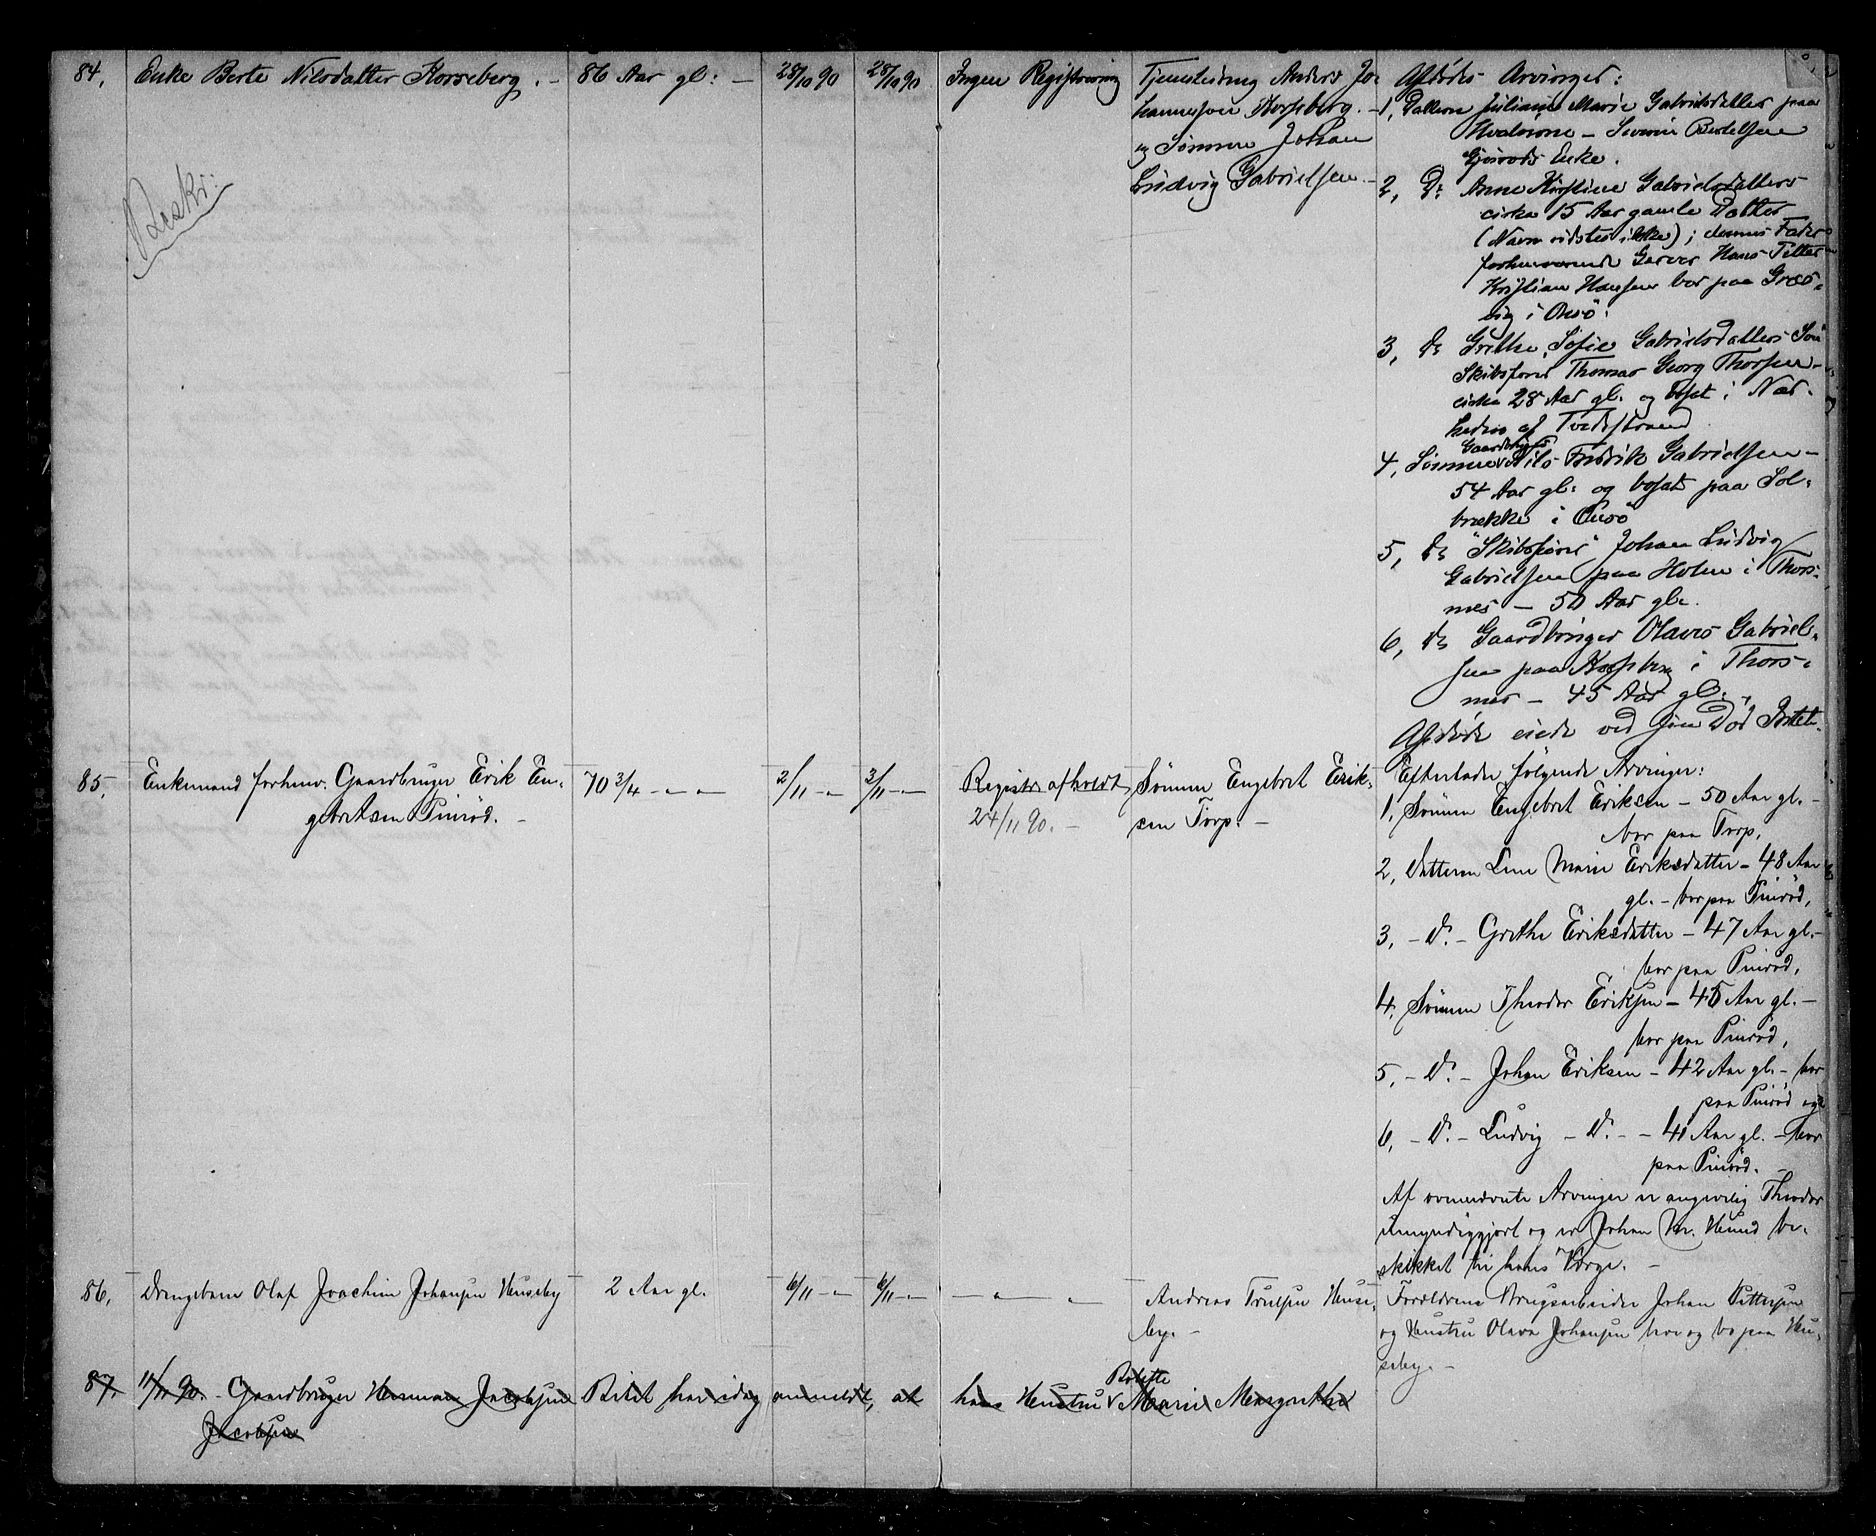 84, Enke Berte Nilsdatter Korseberg. — 86 Aar gl: — 28/10 90 28/10 90 Ingen Registrering Tjenestedreng Anders Jo-
hannesen Korseberg. —
og Sønnen Johan
Ludvig Gabrielsen. —
Afdødes Arvinger:
1, Datteren Juliane Marie Gabrielsdatter paa
Hvaløerne — Severin Bertelsen
Enke.
2, Do Anne Kirstine Gabrielsdatters
cirka 15 Aar gamle Datter
(Navn vidstes ikke); dennes Fader
forhenværende Garver Hans Petter
Kristian Hansen bor paa Græs-
vig i Onsø.
3, Do Grethe Sofie Gabrielsdatters Søn
Skibsfører Thomas Georg Thorsen —
cirka 28 Aar gl. og bosat i Nær-
heden af Tvedestrand
4, Sønnen Gaardbruger Nils Fredrik Gabrielsen —
54 Aar gl: og bosat paa Sol-
brække i Onsø
5, Do "Skibsfører" Johan Ludvig
Gabrielsen paa Holen i Thors-
nes — 50 Aar gl.
6, Do Gaardbruger Olaves Gabriel-
sen paa Korseberg i Thors-
nes — 45 Aar gl.
Afdøde eiede ved sin Død
85, Enkemand forhenv. Gaardbruger Erik En-
gebretsen Pinrød. — 70 3/4 — " — 2/11 — " 3/11 — " Registr. afholdt
24/11 90. — Sønnen Engebret Erik-
sen Torp. —
Efterlader følgende Arvinger:
1, Sønnen Engebret Eriksen — 50 Aar gl. —
bor paa Torp,
2, Datteren Marie Eriksdatter — 48 Aar
gl. — bor paa Pinrød,
3, — Do. — Grethe Eriksdatter — 47 Aar gl. —
bor paa Pinrød,
4, Sønnen Theodor Eriksen — 45 Aar gl. —
bor paa Pinrød,
5, — Do. — Johan Eriksen — 42 Aar gl. — bor
paa Pinrød og
6, — Do. — Ludvig — Do. — — 41 Aar gl. — bor
paa Pinrød. —
Af ovennævnte Arvinger er angivelig Theodor
umyndiggjort og er Johan Hr. Hund be-
skikket til hans Værge. —
86, Drengebarn Olaf Joachim Johansen Huseby 2 Aar gl. 6/11 — " 6/11 — " — " — " Andreas Trulsen Huse-
by. —
Forældrene Brugsarbeider Johan Pettersen
og Hustru Olava Johansen lever og bo paa Hu-
seby. —
87. 11/11 90. Gaardbruger Herman Jacobsen Bilet har idag anmeldt, at hans Hustru Marie Margrethe
Jacobsen